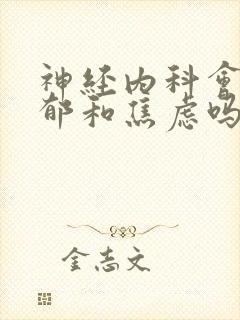 神经内科会
郁和焦虑吗
金志文